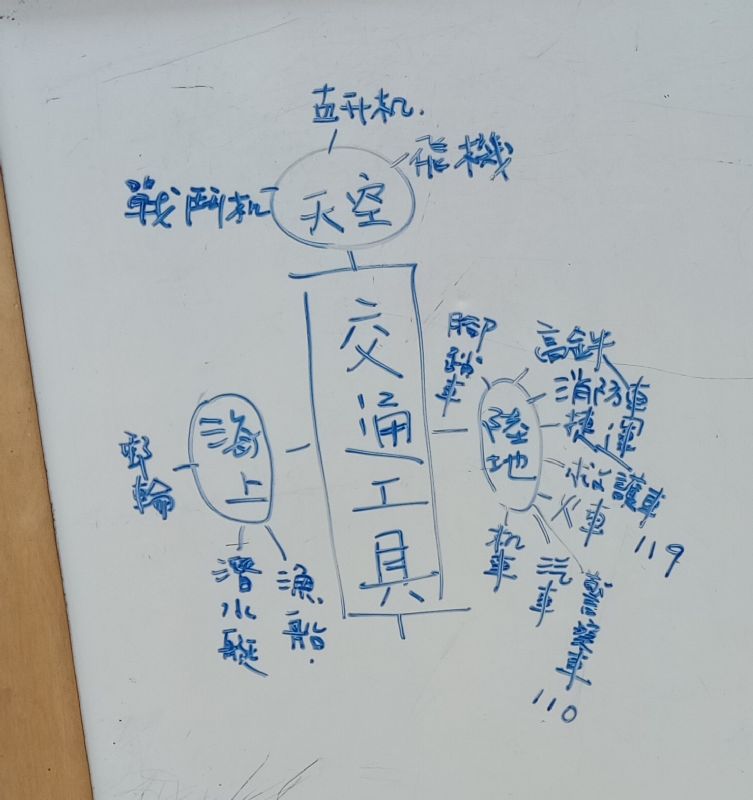 直升机.
飛機
戰鬥机
天空
交通工具
腳踏車
高鉄
消防車
捷運
救護車
119
火車
陸地
机車
汽車
警察車
110
海上
郵輪
潛水艇
漁船.